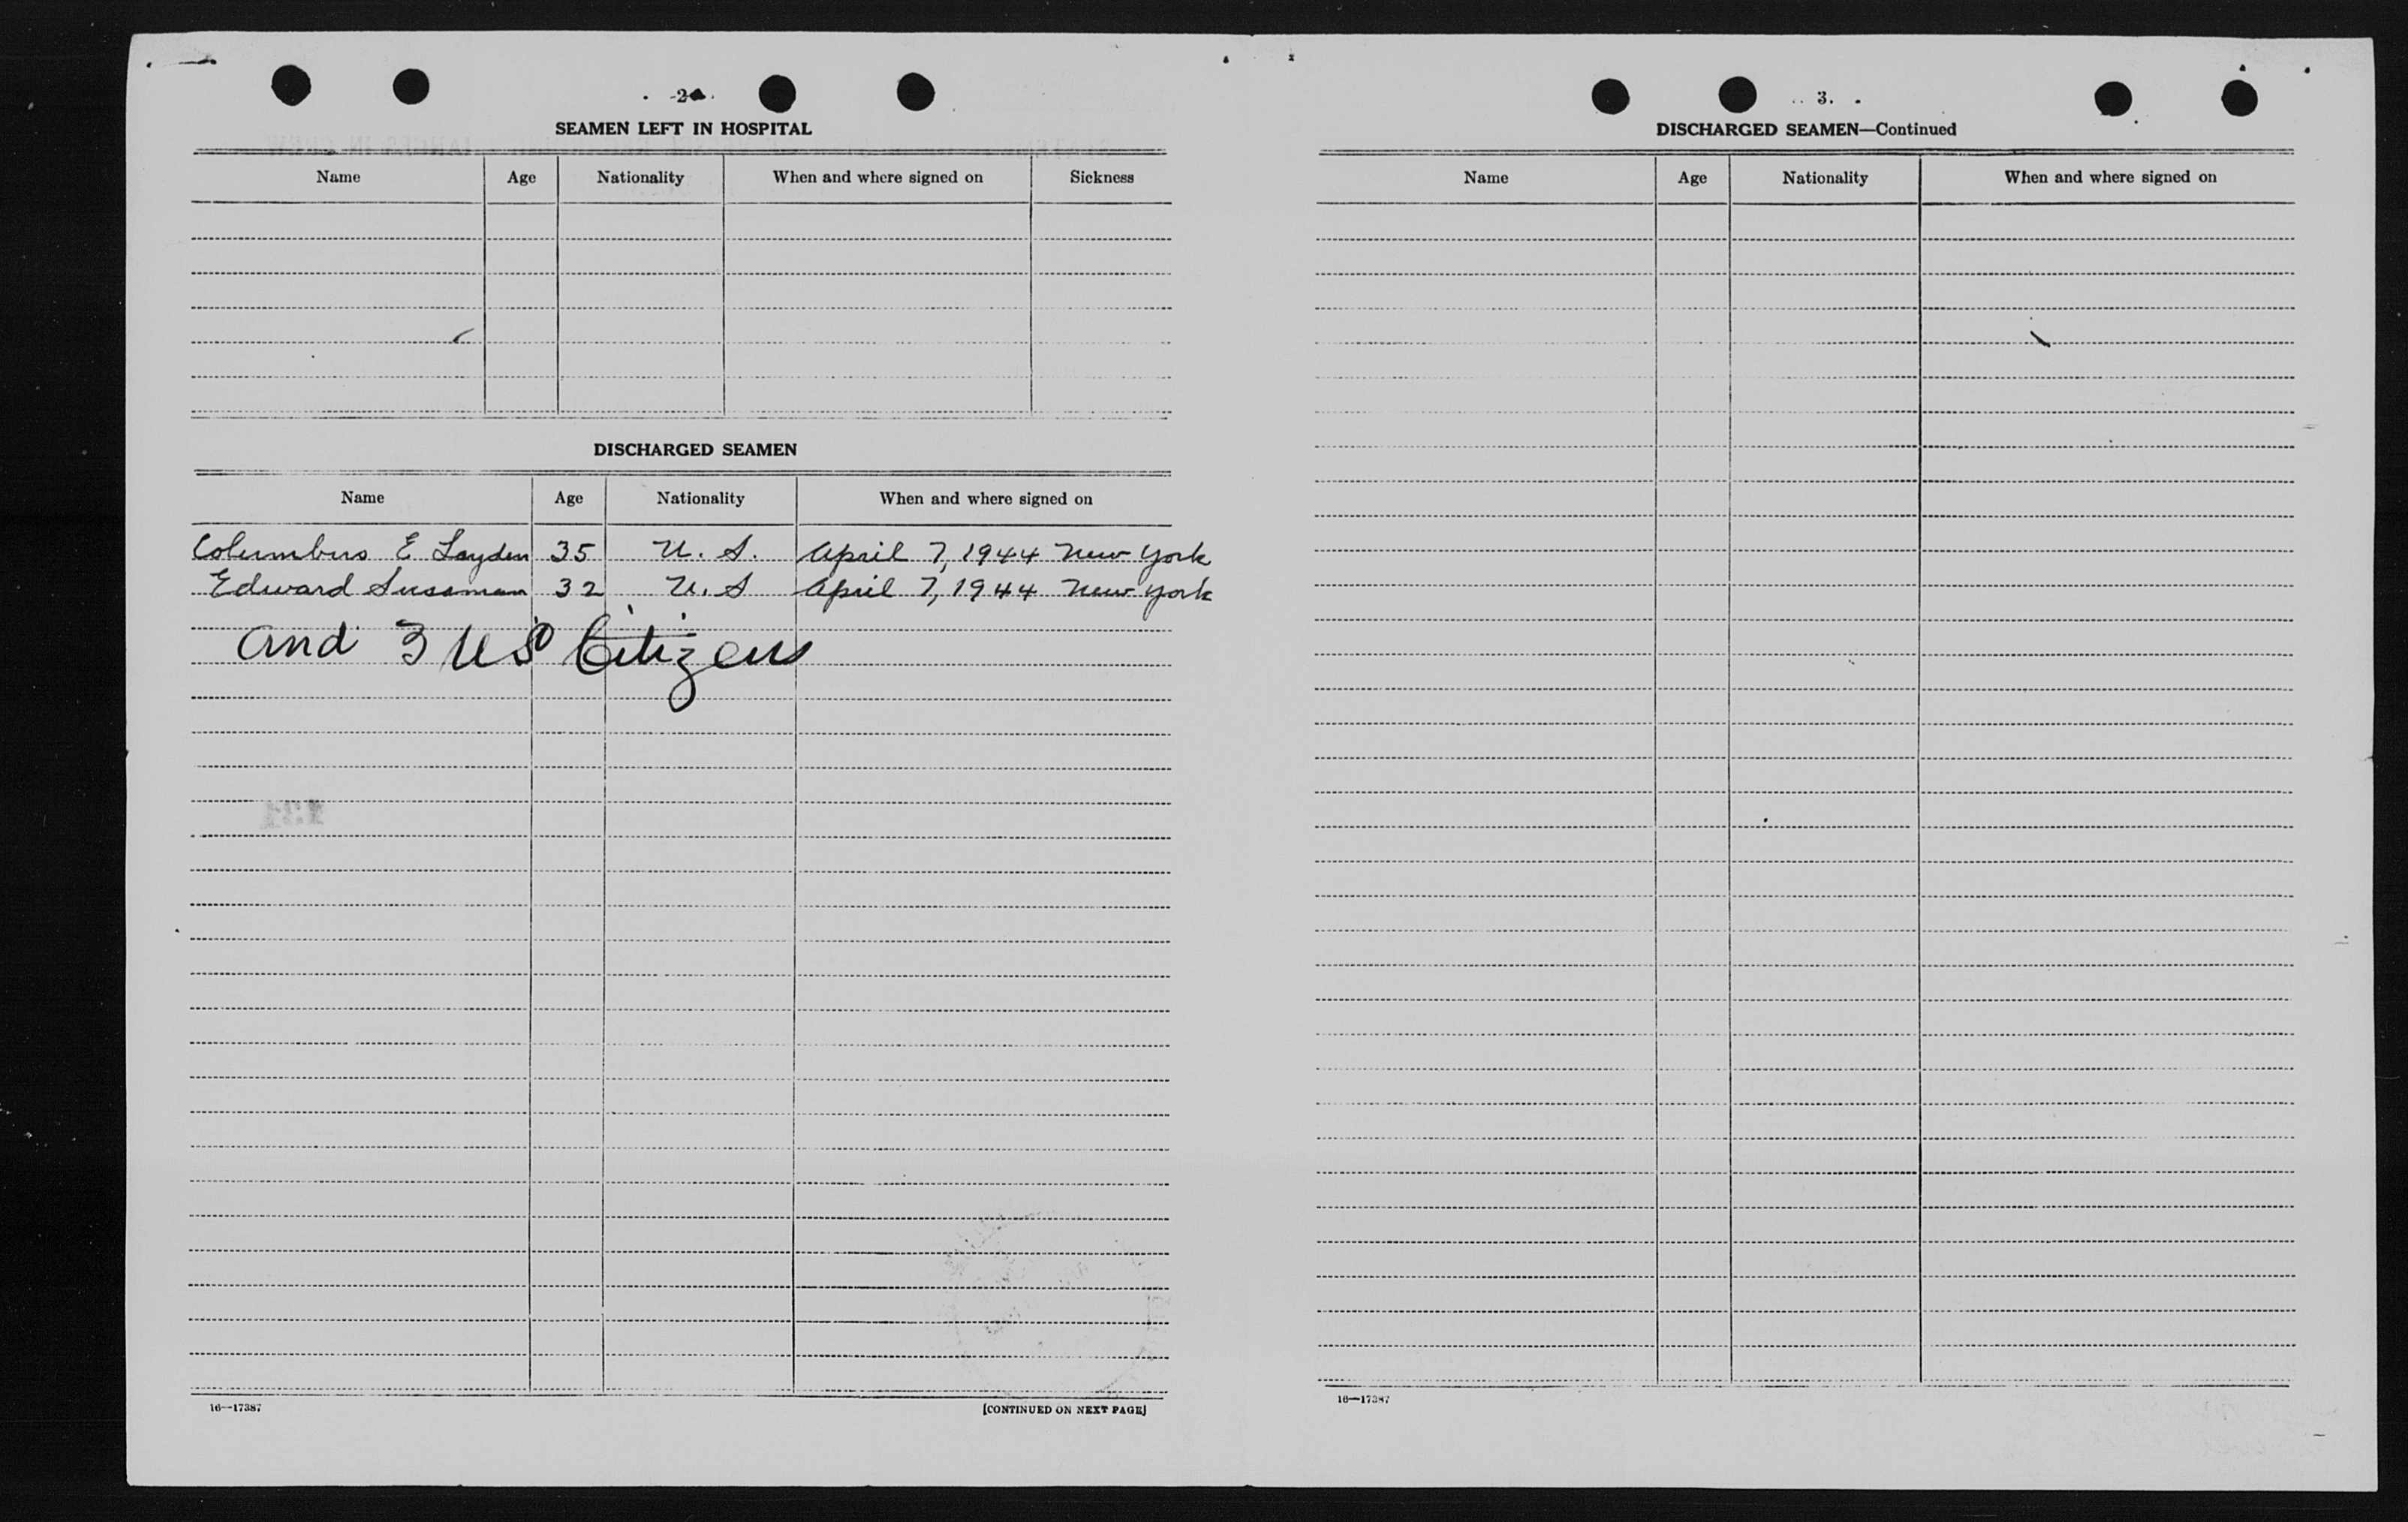 -2-
SEAMEN LEFT IN HOSPITAL
Name Age Nationality When and where signed on Sickness
DISCHARGED SEAMEN
Name Age Nationality When and where signed on
Columbus E Layden 35 U. S. April 7, 1944 New York
Edward Sussman 32 U. S April 7, 1944 New York
and 3 US Citizens
16—17387
[CONTINUED ON NEXT PAGE]
3.
DISCHARGED SEAMEN—Continued
Name Age Nationality When and where signed on
16—17387